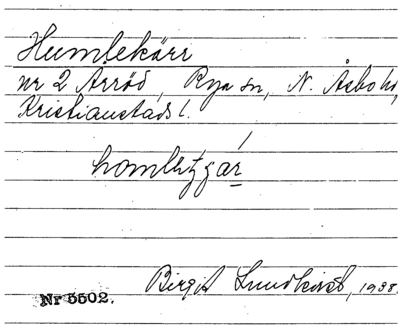 Humlekärr
nr 2 Årröd, Rya sn, N. Åsbo hd,
Kristianstads l.
Birgit Lundkvist, 1938.
Nr 5502.